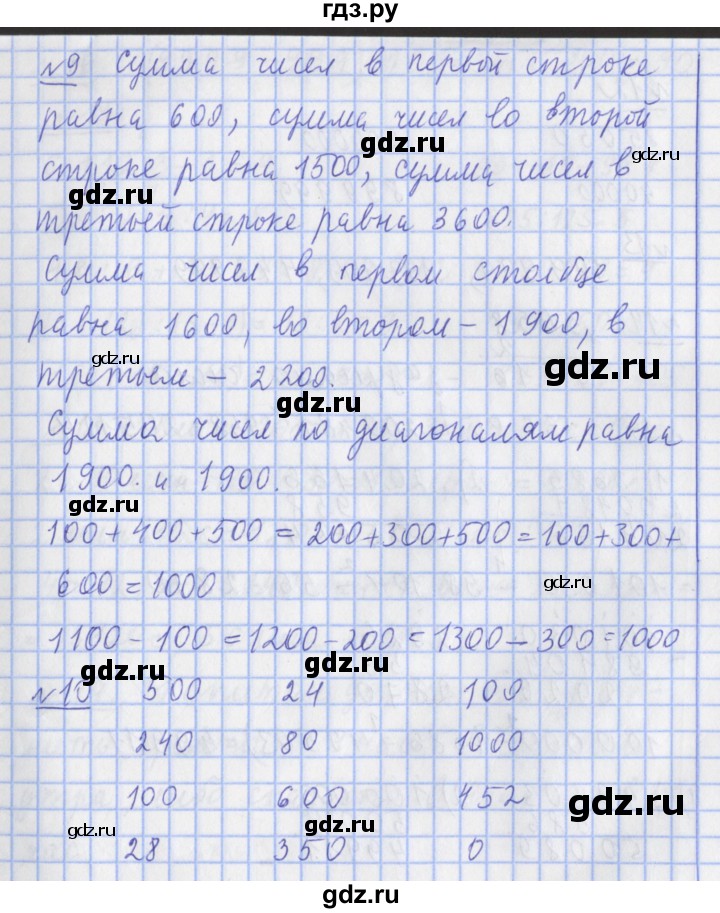 гдз.ру
№9 Сумма чисел в первой строке
равна 600, сумма чисел во второй
строке равна 1500, сумма чисел в
третьей строке равна 3600.
Сумма чисел в первом столбце
равна 1600, во втором – 1900, в
третьем – 2200.
Сумма чисел по диагоналям равна
1900. и 1900.
100 + 400 + 500 = 200+300+500 = 100+300+
600 = 1000
1100 – 100 = 1200 – 200 = 1300 – 300 = 1000
№10 500 24 100
240 80 1000
100 600 452
28 350 0
gdz.ru
gdz.ru
gdz.ru
gdz.ru
gdz.ru
gdz.ru
gdz.ru
gdz.ru
gdz.ru
gdz.ru
gdz.ru
gdz.ru
gdz.ru
gdz.ru